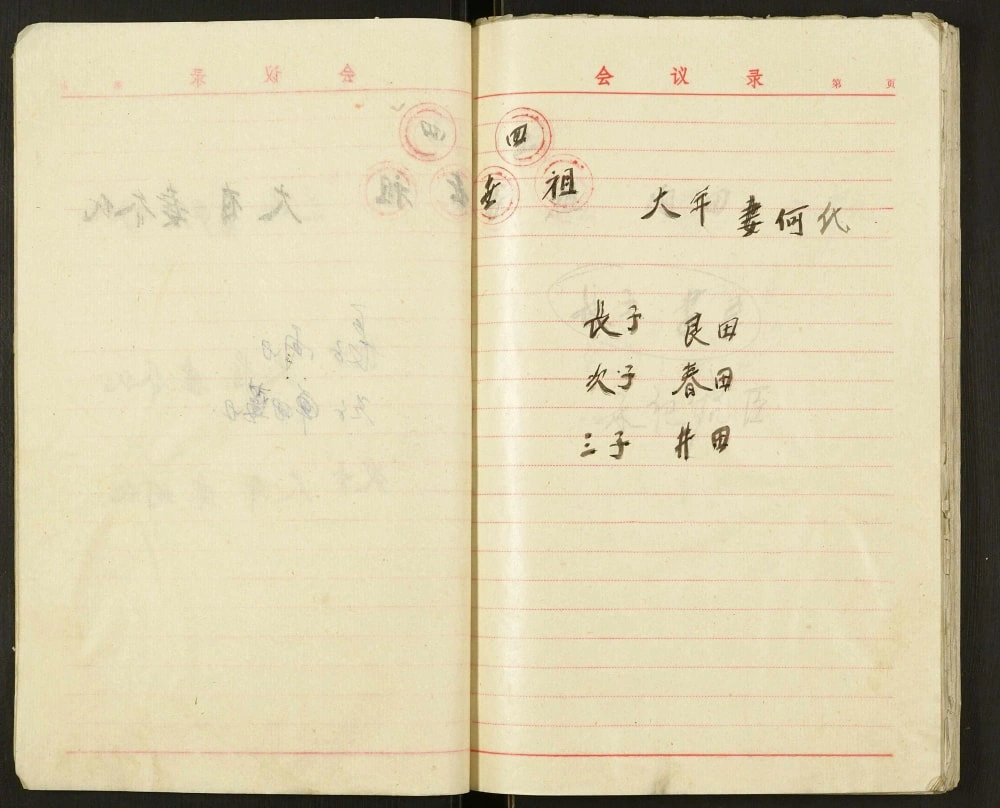 会议录 第 页
四世祖 大年 妻何氏
長子 良田
次子 春田
三子 井田